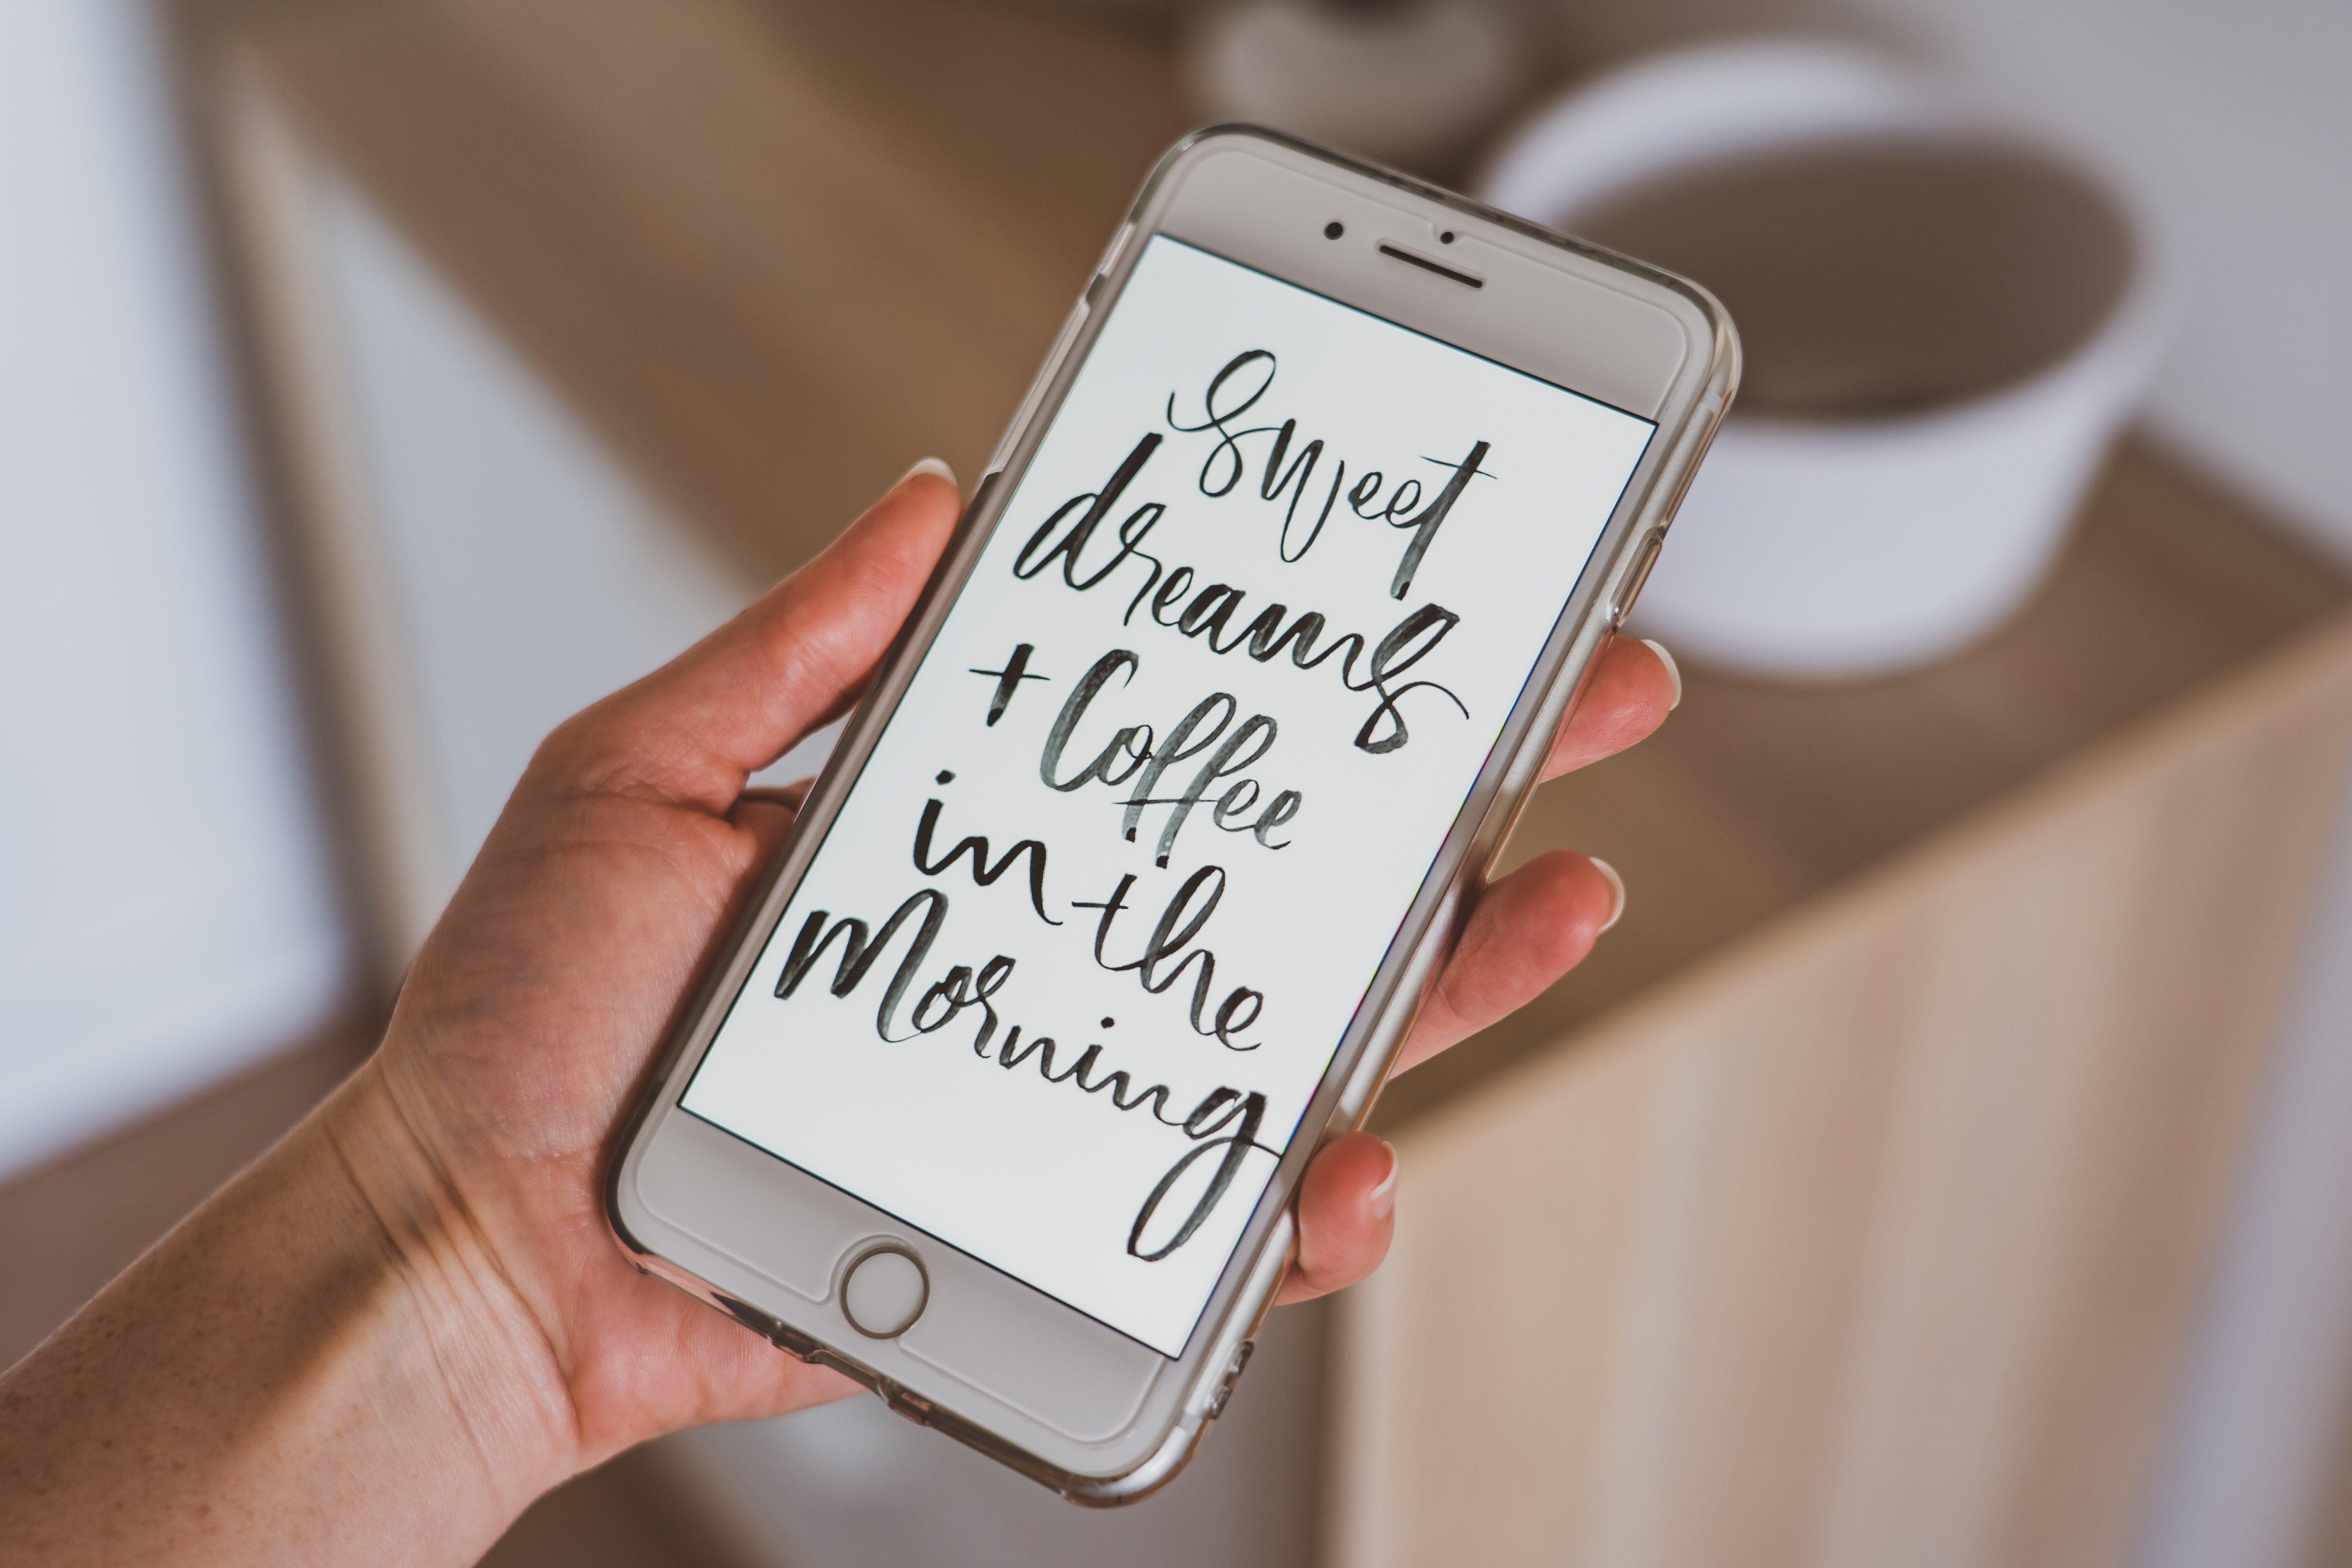 Sweet
dreams
+ Coffee
in the
Morning